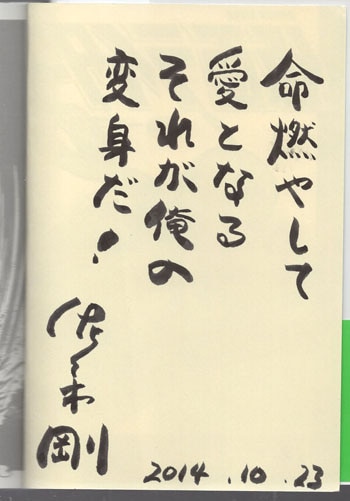 命燃やして
愛となる
それが俺の
変身だ!
佐々木
剛
2014.10.23